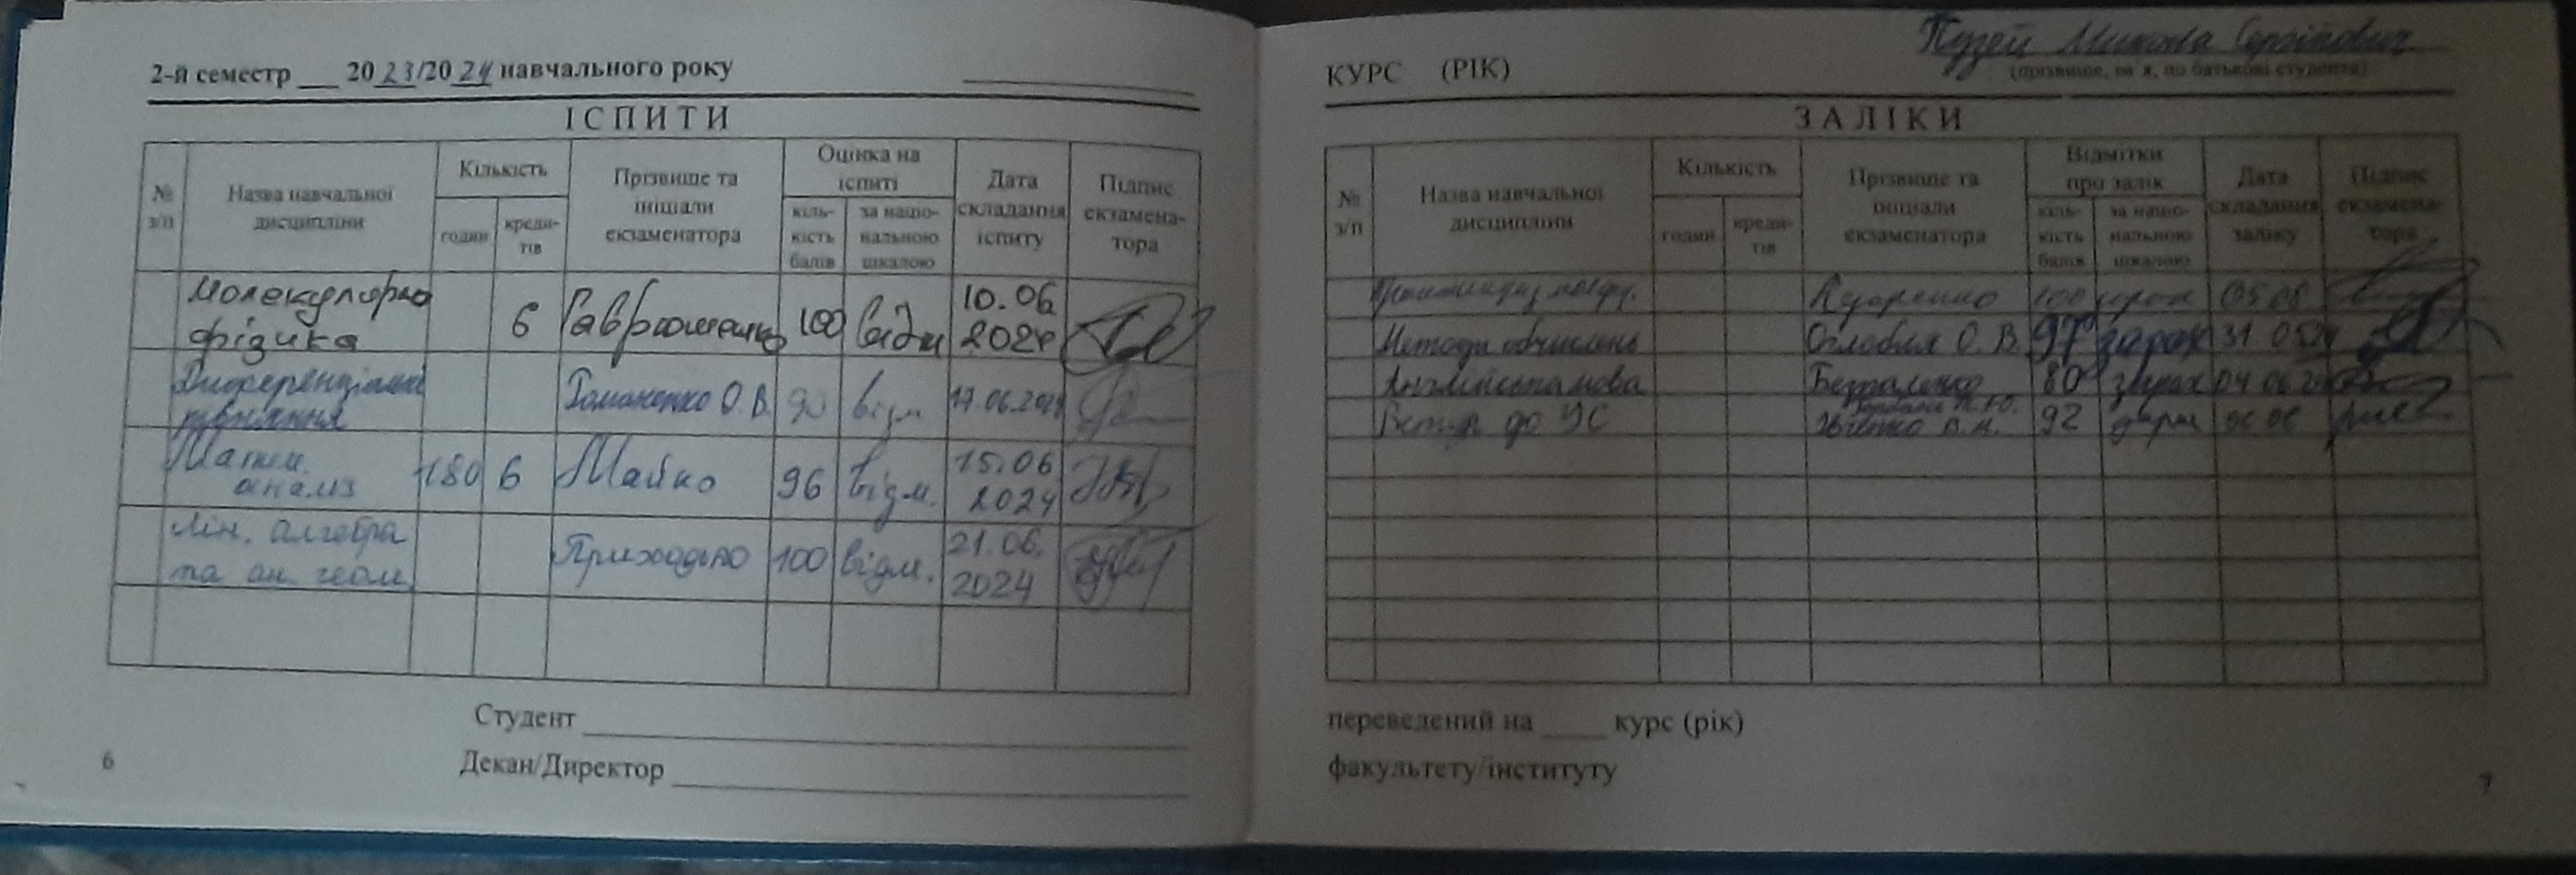 2-й семестр ___ 2023/2024 навчального року
ІСПИТИ
№ з/п
Назва навчальної дисципліни
Кількість
годин
креди-
тів
Прізвище та
ініціали
екзаменатора
Оцінка на
іспиті
кіль-
кість
балів
за націо-
нальною
шкалою
Дата
складання
іспиту
Підпис
екзамена-
тора
Молекулярна
фізика
6 Гаврюшенко 100 відм 10.06
2024
Диференціальні
рівняння
Романенко О.В. 90 відм 17.06.2024
Матем.
аналіз
180 6 Майко 96 відм. 15.06
2024
Лін. алгебра
та ан. геом.
Приходько 100 відм. 21.06.
2024
Студент
Декан/Директор
6
Пузей Микола Сергійович
(прізвище, ім'я, по батькові студента)
КУРС (РІК)
ЗАЛІКИ
№
з/п
Назва навчальної
дисципліни
Кількість
годин
креди-
тів
Прізвище та
ініціали
екзаменатора
Відмітки
про залік
кіль-
кість
балів
за націо-
нальною
шкалою
Дата
складання
заліку
Підпис
екзамена-
тора
100 зарах
Методи обчислень Оглобля О. В. 97 зарах 31 05
Англійська мова Безпаленко 80 зарах 04 06
Вступ до 92 зарах 06 06
переведений на ____ курс (рік)
факультету/інституту
7